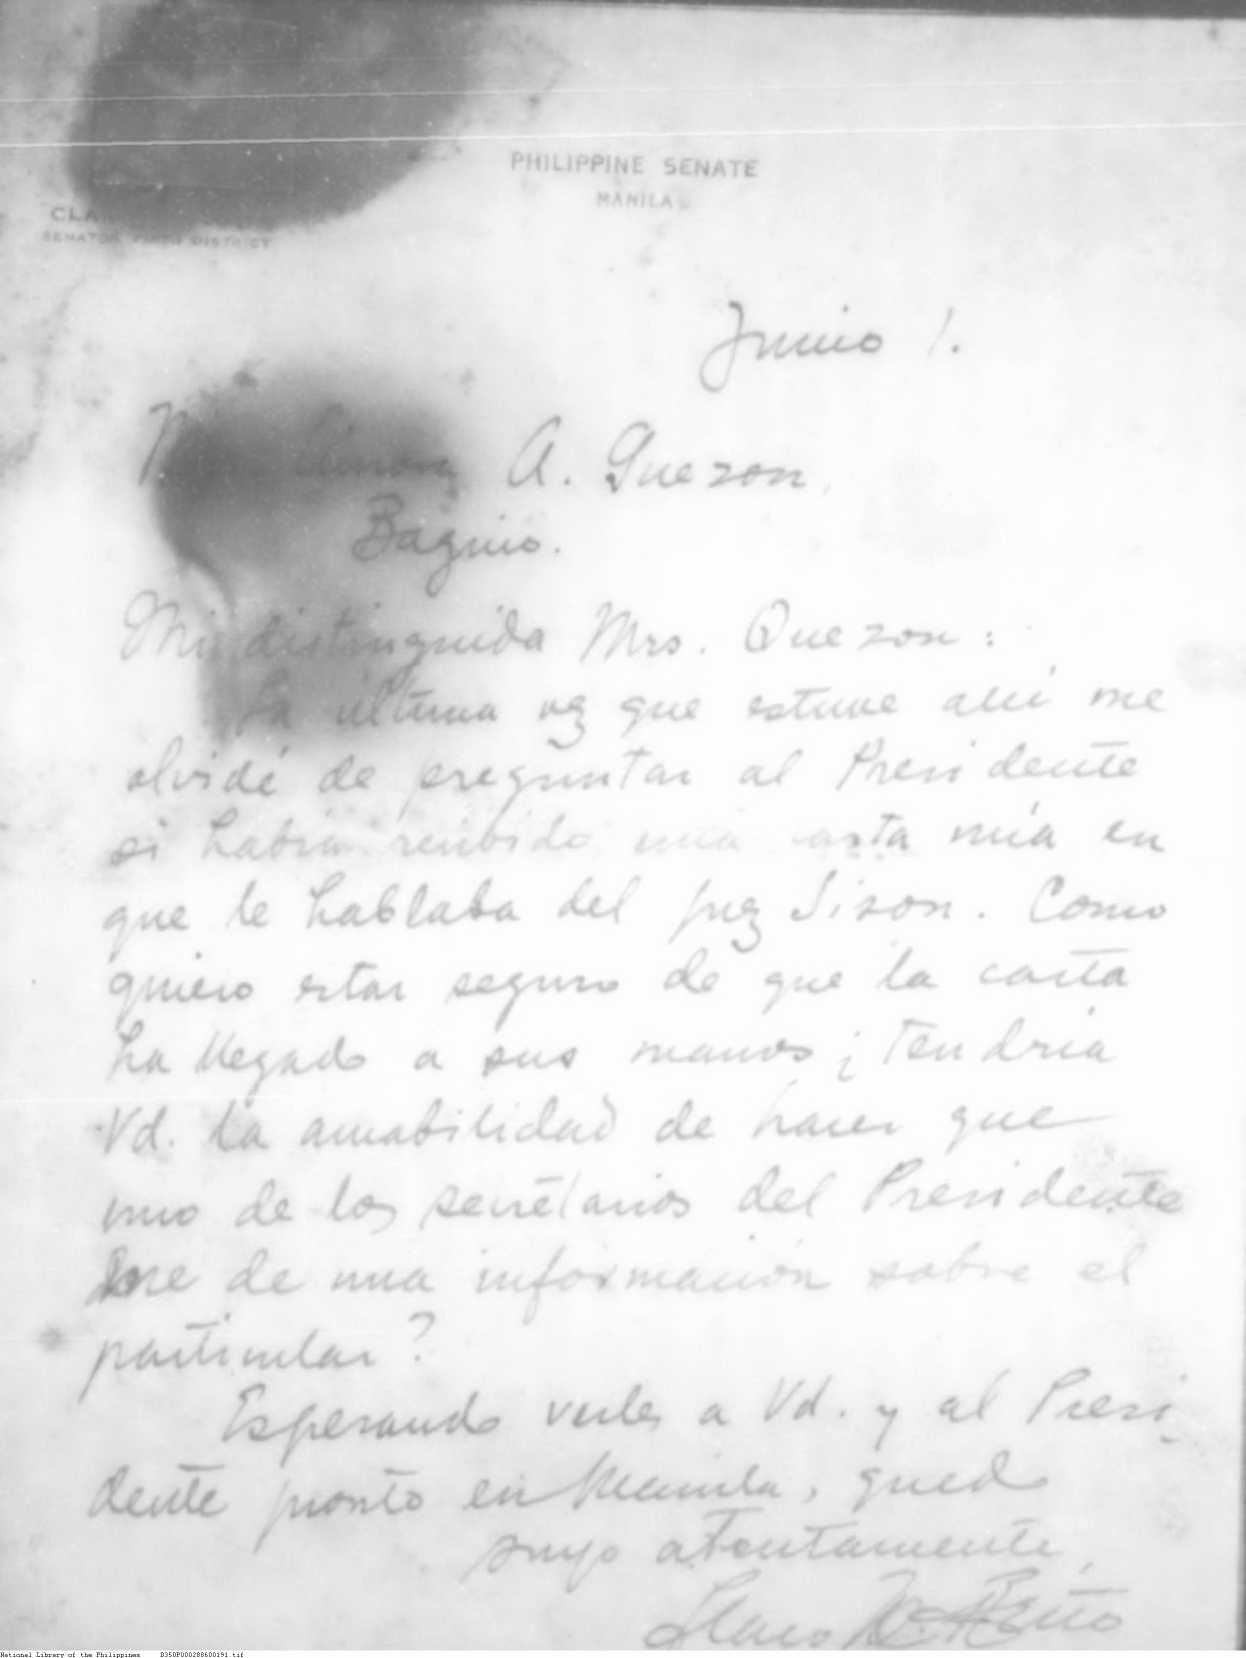 PHILIPPINE SENATE
MANILA
CLA
SENATOR DISTRICT
Junio 1.
A. Quezon,
Baguio.
Mi distinguida Mrs. Quezon:
La última vez que estuve ahí me
olvidé de preguntar al Presidente
si había recibido una carta mía en
que le hablaba del juez Sison. Como
quiero estar seguro de que la carta
ha llegado a sus manos ¿tendría
Vd. la amabilidad de hacer que
uno de los secretarios del Presidente
me de una información sobre el
particular?
Esperando verles a Vd. y al Presi-
dente pronto en Manila, quedo
suyo atentamente,
Claro M. Recto
National Library of the Philippines D350P000288600191.tif